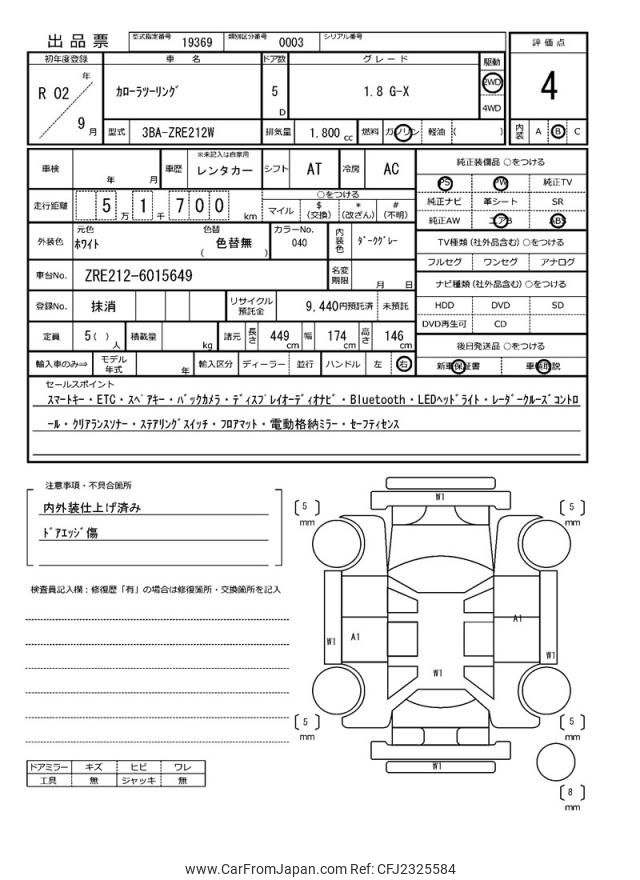 出品票 型式指定番号 19369 類別区分番号 0003 シリアル番号
評価点
4
内装 A B C
初年度登録 車名 ドア数 グレード 駆動
R 02 年 9 月
カローラツーリング 5 D 1.8 G-X 2WD 4WD
型式 3BA-ZRE212W 排気量 1.800 cc 燃料 ガソリン 軽油 ( )
車検 年 月 車歴 ※未記入は自家用 レンタカー シフト AT 冷房 AC
走行距離 5万 1千 7 0 0 km
○をつける
マイル $(交換) *(改ざん) #(不明)
外装色 元色 ホワイト 色替 ( 色替無 ) カラーNo. 040 内装色 ダークグレー
車台No. ZRE212-6015649 名変期限 月 日
登録No. 抹消 リサイクル預託金 9,440円預託済 未預託
定員 5( )人 積載量 kg 諸元 長さ 449cm 幅 174cm 高さ 146cm
輸入車のみ⇒ モデル年式 年 輸入区分 ディーラー 並行 ハンドル 左 右
純正装備品 ○をつける
PS PW 純正TV
純正ナビ 革シート SR
純正AW エアB ABS
TV種類(社外品含む) ○をつける
フルセグ ワンセグ アナログ
ナビ種類(社外品含む) ○をつける
HDD DVD SD
DVD再生可 CD
後日発送品 ○をつける
新車保証書 車輌取説
セールスポイント
スマートキー・ETC・スペアキー・バックカメラ・ディスプレイオーディオナビ・Bluetooth・LEDヘッドライト・レーダークルーズコントロ
ール・クリアランスソナー・ステアリングスイッチ・フロアマット・電動格納ミラー・セーフティセンス
注意事項・不具合箇所
内外装仕上げ済み
ドアエッジ傷
検査員記入欄：修復歴「有」の場合は修復箇所・交換箇所を記入
W1
5 mm
5 mm
A1
W1 A1
W1
W1
5 mm
5 mm
W1
8 mm
ドアミラー キズ ヒビ ワレ
工具 無 ジャッキ 無
www.CarFromJapan.com Ref: CFJ2325584